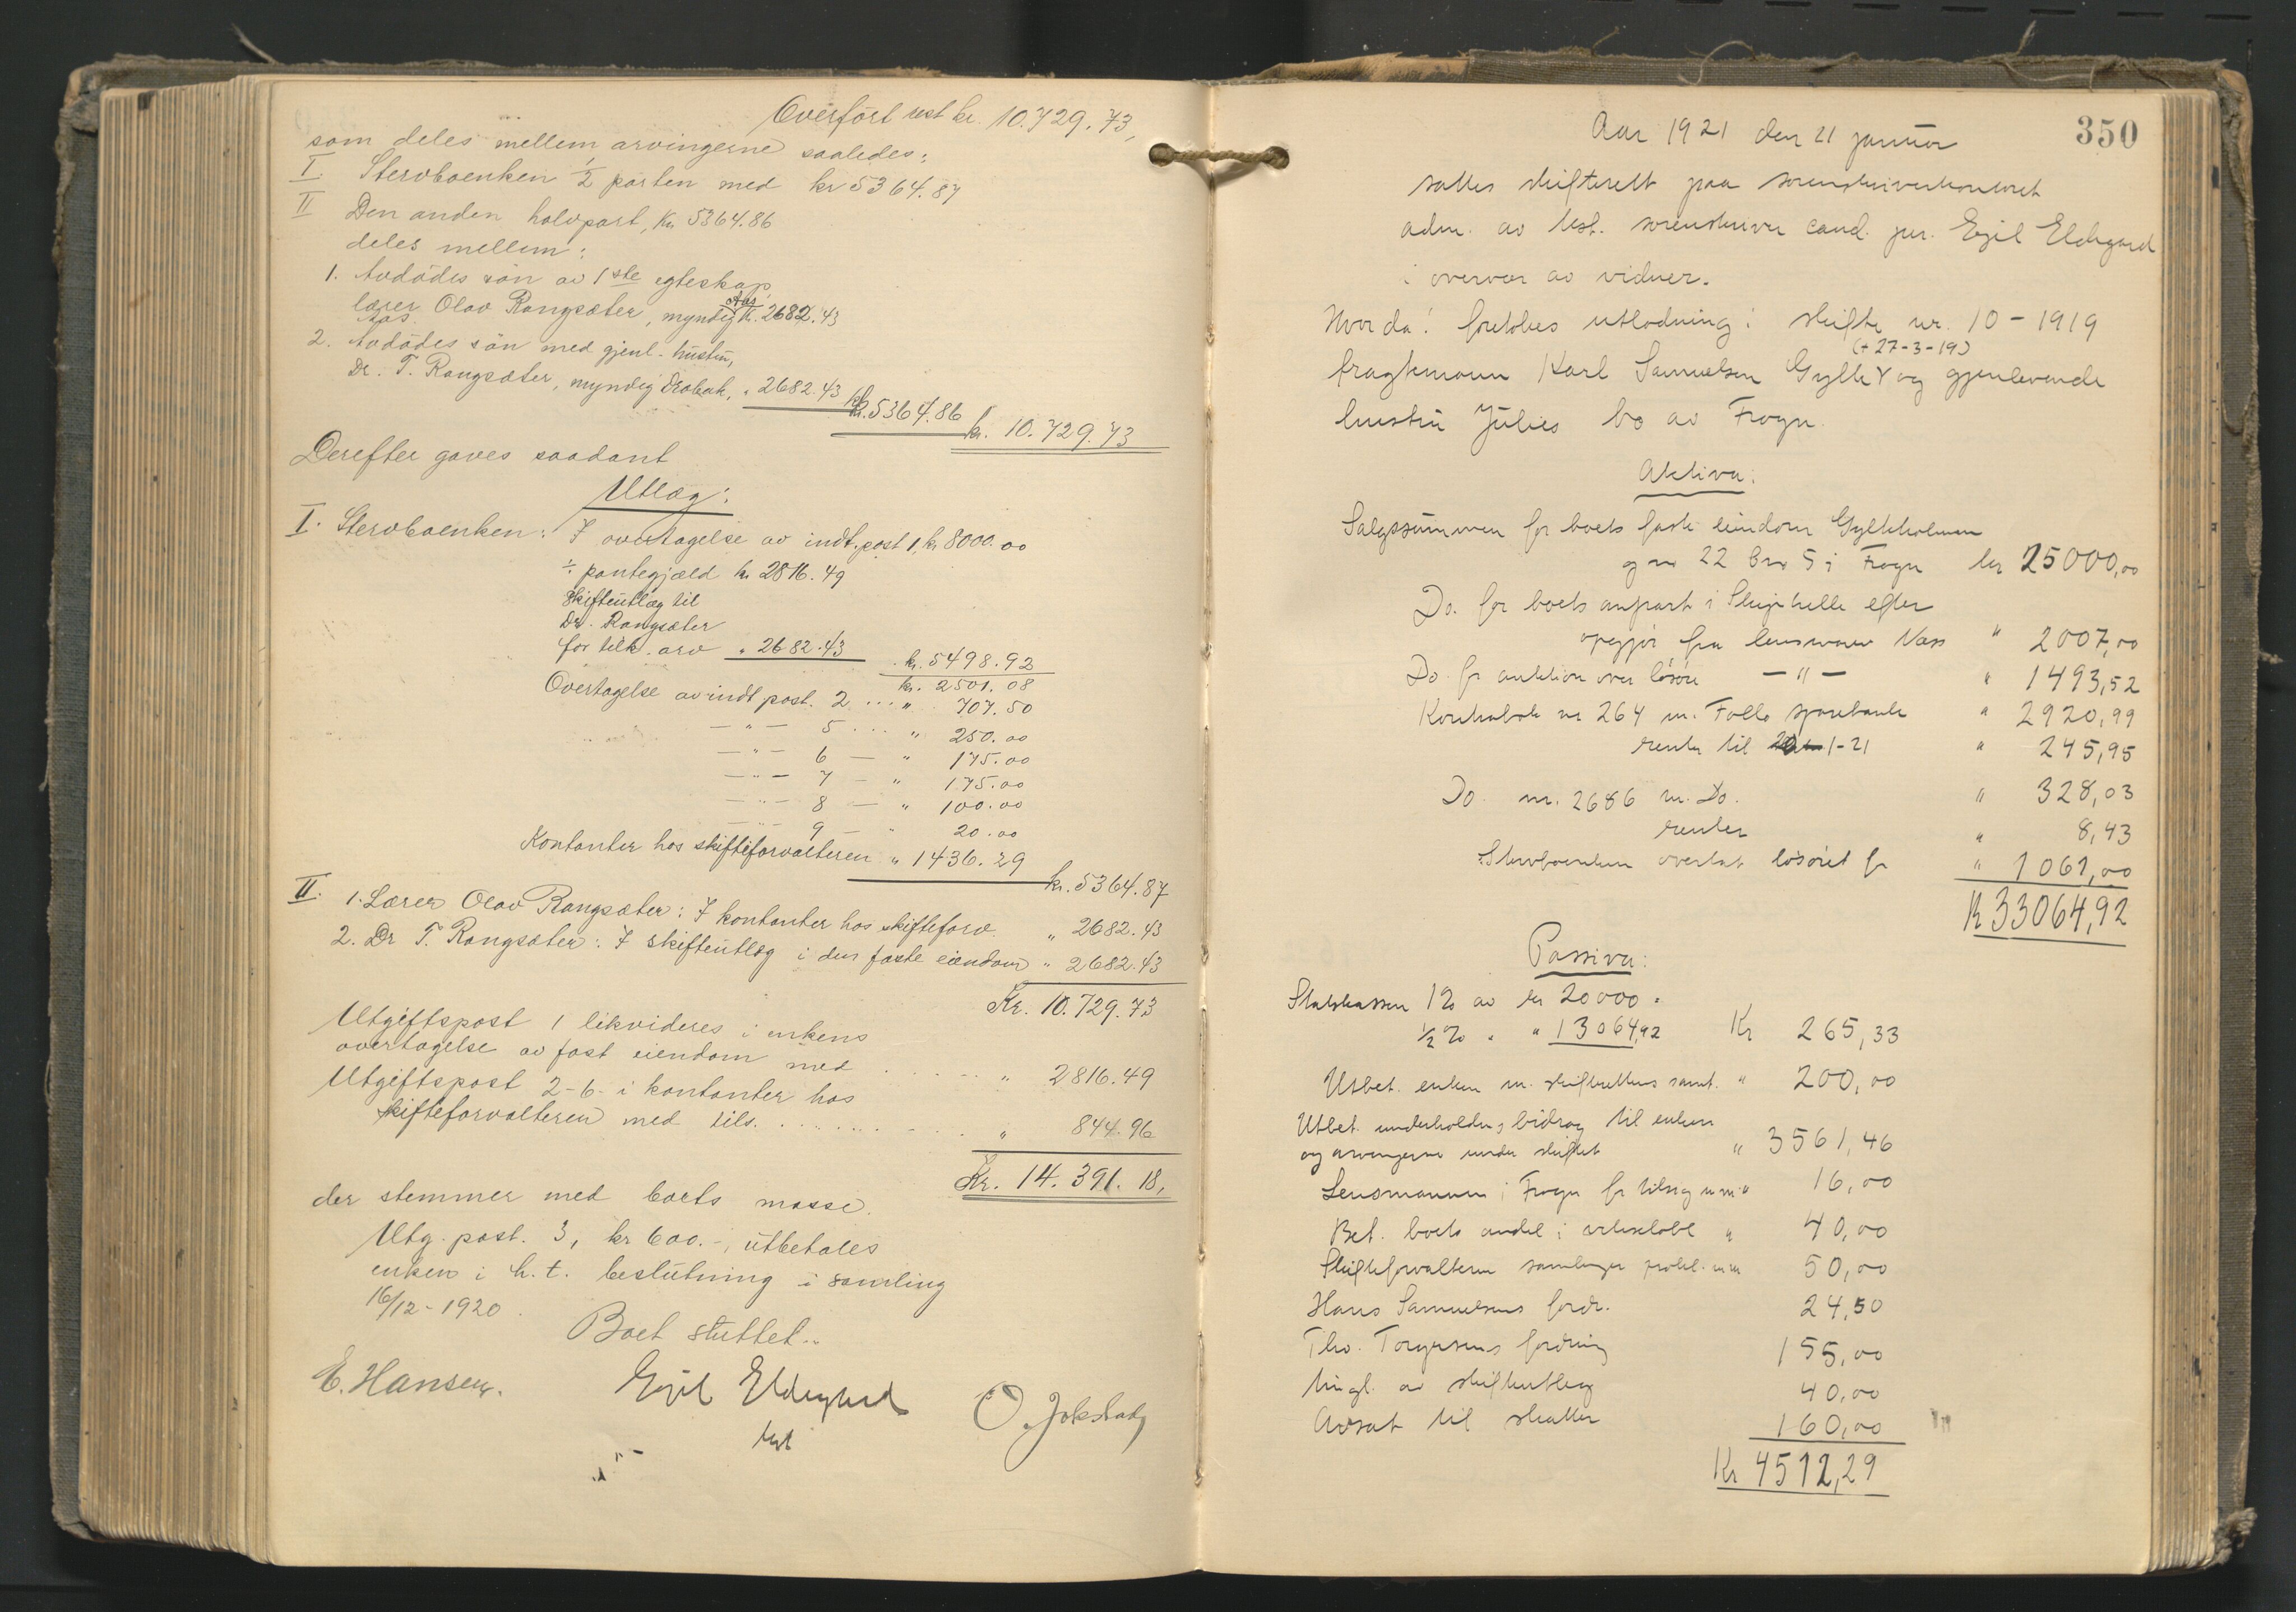 Overført rest kr. 10.729.73,
som deles mellem arvingerne saaledes:
I. Stervboenken 1/2 parten med kr 5364.87
II Den anden halvpart, kr. 5364.86
deles mellem:
1. Avdødes søn av 1ste egteskap,
lærer Olav Rangsæter, myndig Aas kr. 2682.43
Aas.
2. Avdødes søn med gjenl. hustru,
Dr. T. Rangsæter, myndig Drøbak, " 2682.43 kr. 5364.86
kr. 10.729.73
Derefter gaves saadant
Utlæg:
I. Stervboenken: I overtagelse av indt. post 1, kr 8000.00
÷ pantegjæld kr 2816.49
Skifteutlæg til
Dr. Rangsæter
for tilk. arv " 2682.43 kr. 5498.92
kr. 2501.08
Overtagelse av indt post. 2 ... " 707.50
— " — 5 ... " 250.00
— " — 6 — " 175.00
— " — 7 — " 175.00
— " — 8 — " 100.00
— " — 9 — " 20.00
Kontanter hos skifteforvalteren " 1436.29
kr. 5364.87
II. 1. Lærer Olav Rangsæter: I kontanter hos skifteforv. " 2682.43
2. Dr T. Rangsæter: I skifteutlæg i den faste eiendom " 2682.43
Kr. 10.729.73
Utgiftspost 1 likvideres i enkens
overtagelse av fast eiendom med ..... " 2816.49
Utgiftspost 2-6 i kontanter hos
skifteforvalteren med tils. ........ " 844.96
Kr. 14.391.18,
der stemmer med boets masse.
Utg. post. 3, kr 600.-, utbetales
enken i h.t. beslutning i samling
16/12-1920.
Boet sluttet.
E. Hansen. Egil Eldegard O. Jokstad
350
Aar 1921 den 21 januar
sattes skifterett paa sorenskriverkontoret
adm. av kst. sorenskriver cand. jur. Egil Eldegard
i overvær av vidner.
Hvorda! foretokes utlodning i skifte nr. 10-1919
(+ 27-3-19)
fragtemann Karl Samuelsen Gylte og gjenlevende
hustru Julies bo av Frogn.
Aktiva:
Salgssummen for boets faste eiendom Gylteholmen
g nr 22 bnr 5 i Frogn kr 25000,00
Do. for boets anpart i Skiphelle efter
opgjør fra lensmann Næss " 2007,00
Do for auktion over løsøre — " — " 1493,52
Kontrabok nr 264 m. Follo sparebank " 2920,99
renter til 1-21 " 245,95
Do. nr. 2686 m. Do. " 328,03
renter " 8,43
Stervboenken overtat løsøret for " 1061,00
Kr 33064,92
Passiva:
Statskassen 1% av kr 20000.
1/2 % " " 13064,92 Kr 265,33
Utbet. enken m. skifterettens samt. " 200,00
Utbet. underholdnsbidrag til enken
og arvingerne under skiftet " 3561,46
Lensmannen i Frogn for tilsig m m " 16,00
Bet. boets andel i " 40,00
Skifteforvalteren samlinger protok. m m 50,00
Hans Samuelsens fordr. 24,50
Tho. Torgersens fordring 155,00
tingl. av skifteutlæg 40,00
Avsat til skatter 160,00
Kr 4512,29